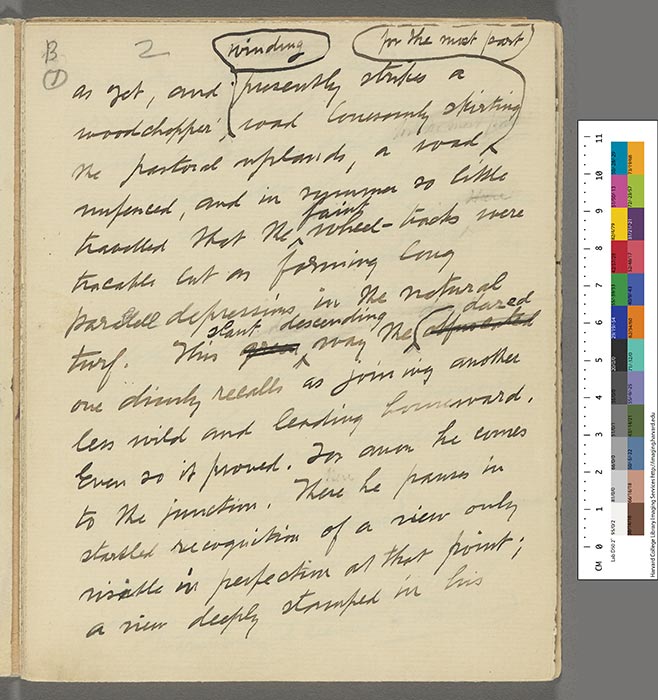 B 2 winding for the most part
1
as yet, and presently strikes a
woodchopper's road lonesomely skirting
the pastoral uplands, a road
unfenced, and in summer so little
travelled that the faint wheel-tracks were
tracable but as forming long
parallel depressions in the natural
turf. This slant descending way the dazed
one dimly recalls as joining another
less wild and leading homeward.
Even so it proved. For anon he comes
to the junction. There he pauses in
startled recognition of a view only
visible in perfection at that point;
a view deeply stamped in his
11
10
9
8
7
6
5
4
3
2
1
CM 0
Harvard College Library Imaging Services http://imaging.harvard.edu